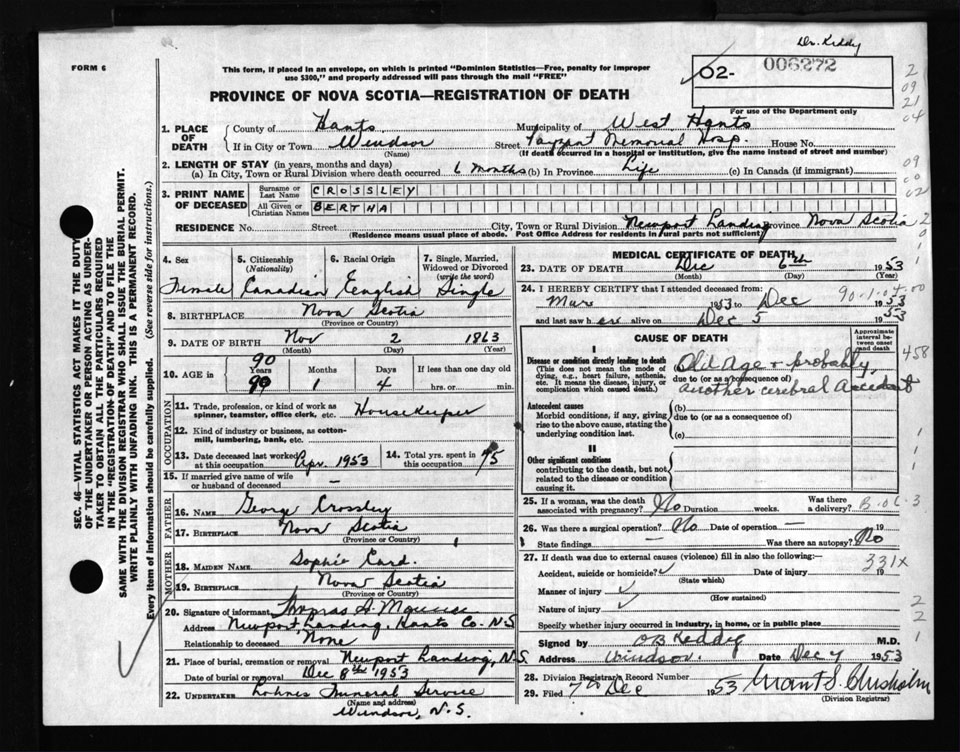 Dr. Keddy
FORM 6
This form, if placed in an envelope, on which is printed "Dominion Statistics—Free, penalty for improper use $300," and properly addressed will pass through the mail "FREE"
02- 006272
For use of the Department only
PROVINCE OF NOVA SCOTIA—REGISTRATION OF DEATH
1. PLACE OF DEATH
County of Hants Municipality of West Hants
If in City or Town Windsor (Name) Street Payzant Memorial Hosp. House No.
(If death occurred in a hospital or institution, give the name instead of street and number)
2. LENGTH OF STAY (in years, months and days)
(a) In City, Town or Rural Division where death occurred 6 months (b) In Province Life (c) In Canada (if immigrant)
3. PRINT NAME OF DECEASED
Surname or Last Name CROSSLEY
All Given or Christian Names BERTHA
RESIDENCE No. Street City, Town or Rural Division Newport Landing Province Nova Scotia
(Residence means usual place of abode. Post Office Address for residents in rural parts not sufficient)
4. Sex Female
5. Citizenship (Nationality) Canadian
6. Racial Origin English
7. Single, Married, Widowed or Divorced (write the word) Single
8. BIRTHPLACE Nova Scotia
(Province or Country)
9. DATE OF BIRTH Nov 2 1863
(Month) (Day) (Year)
10. AGE in 90 Years 1 Months 4 Days If less than one day hrs. or min.
OCCUPATION
11. Trade, profession, or kind of work as spinner, teamster, office clerk, etc. Housekeeper
12. Kind of industry or business, as cotton-mill, lumbering, bank, etc.
13. Date deceased last worked at this occupation Apr. 1953
14. Total yrs. spent in this occupation 75
15. If married give name of wife or husband of deceased —
FATHER
16. NAME George Crossley
17. BIRTHPLACE Nova Scotia
(Province or Country)
MOTHER
18. MAIDEN NAME Sophie Card.
19. BIRTHPLACE Nova Scotia
(Province or Country)
20. Signature of informant Thomas A.
Address Newport Landing, Hants Co. N.S
Relationship to deceased None
21. Place of burial, cremation or removal Newport Landing, N.S.
Date of burial or removal Dec 8th 1953
22. UNDERTAKER Lohnes Funeral Service
(Name and address)
Windsor, N.S.
MEDICAL CERTIFICATE OF DEATH
23. DATE OF DEATH Dec 6th 1953
(Month) (Day) (Year)
24. I HEREBY CERTIFY that I attended deceased from:
Mar 1953 to Dec 1953
and last saw her alive on Dec 5 1953
CAUSE OF DEATH
Approximate interval between onset and death
I
Disease or condition directly leading to death
(This does not mean the mode of dying, e.g., heart failure, asthenia, etc. It means the disease, injury, or complication which caused death.)
Old Age + probably
due to (or as a consequence of)
another cerebral Accident
Antecedent causes
Morbid conditions, if any, giving rise to the above cause, stating the underlying condition last.
(b)
due to (or as a consequence of)
(c)
II
Other significant conditions contributing to the death, but not related to the disease or condition causing it.
25. If a woman, was the death associated with pregnancy? No Duration weeks. Was there a delivery?
26. Was there a surgical operation? No Date of operation — 19
State findings — Was there an autopsy? No
27. If death was due to external causes (violence) fill in also the following:
331X
Accident, suicide or homicide? Date of injury 19
(State which)
Manner of injury
(How sustained)
Nature of injury
Specify whether injury occurred in industry, in home, or in public place
Signed by OB Keddy M.D.
Address Windsor. Date Dec 7 1953
28. Division Registrar's Record Number
29. Filed 7th Dec 1953 Grant S. Chisholm
(Division Registrar)
SEC. 46—VITAL STATISTICS ACT MAKES IT THE DUTY OF THE UNDERTAKER OR PERSON ACTING AS UNDERTAKER TO OBTAIN ALL THE PARTICULARS REQUIRED IN THE "REGISTRATION OF DEATH" AND TO FILE THE SAME WITH THE DIVISION REGISTRAR WHO SHALL ISSUE THE BURIAL PERMIT.
WRITE PLAINLY WITH UNFADING INK. THIS IS A PERMANENT RECORD.
Every item of information should be carefully supplied. (See reverse side for instructions.)
2
09
21
04
09
00
02
458